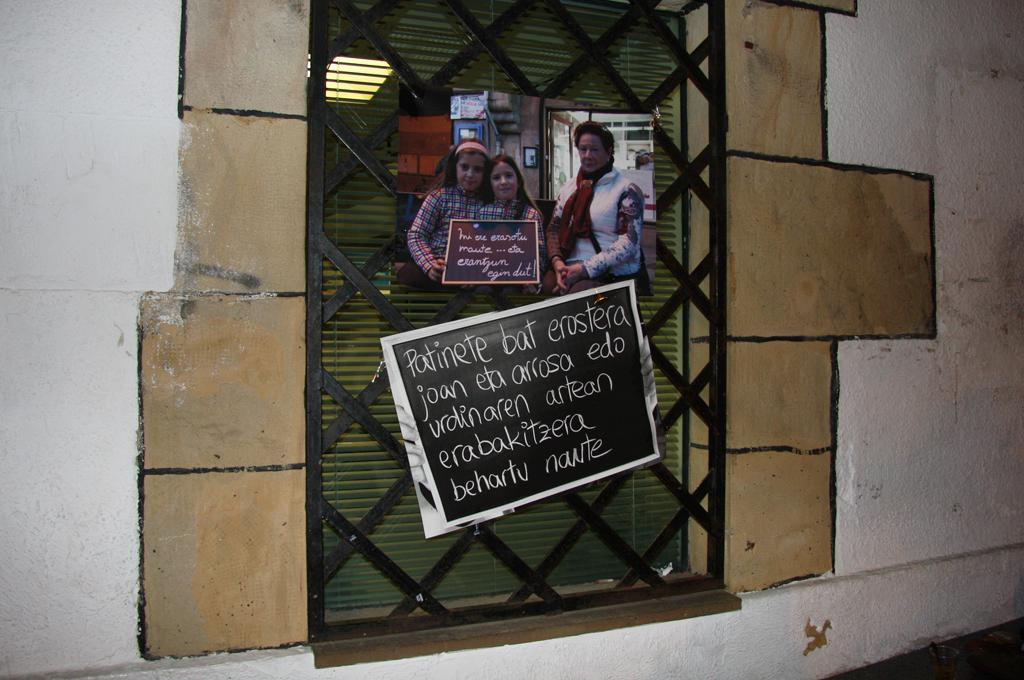 Ni ere erasotu
naute ... eta
erantzun
egin dut!
Patinete bat erostera
joan eta arrosa edo
urdinaren artean
erabakitzera
behartu naute